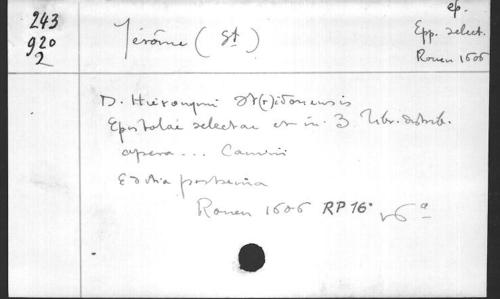 243
920
2
Jérôme (St)
ep.
Epp. select.
Rouen 1606
D. Hieronymi St(r)idonensis
Epistolae selectae et in 3 libr. distrib.
opera... Canisii
Editio postrema
Rouen 1606 RP 16°